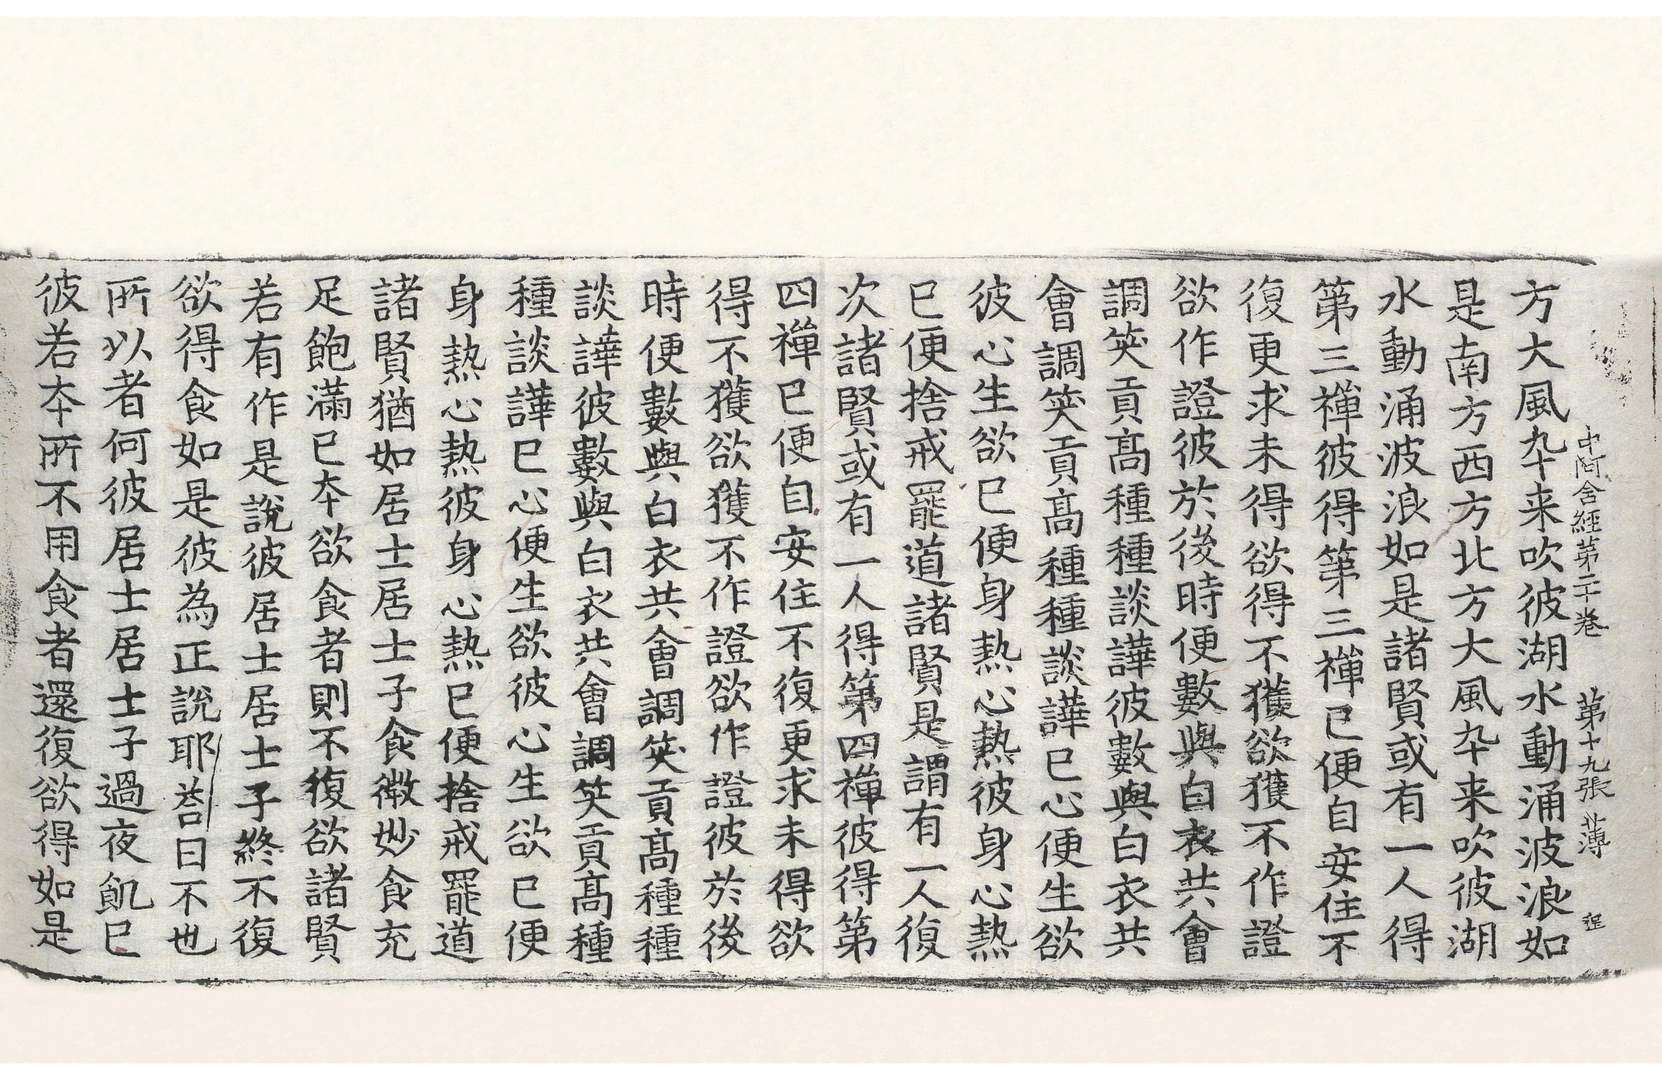 中阿含經第二十卷　第十九張　薄　程
方大風卆来吹彼湖水動涌波浪如
是南方西方北方大風卆来吹彼湖
水動涌波浪如是諸賢或有一人得
第三禪彼得第三禪已便自安住不
復更求未得欲得不獲欲獲不作證
欲作證彼於後時便數與白衣共會
調笑貢髙種種談譁彼數與白衣共
會調笑貢髙種種談譁已心便生欲
彼心生欲已便身熱心熱彼身心熱
已便捨戒罷道諸賢是謂有一人復
次諸賢或有一人得第四禪彼得第
四禪已便自安住不復更求未得欲
得不獲欲獲不作證欲作證彼於後
時便數與白衣共會調笑貢髙種種
談譁彼數與白衣共會調笑貢髙種
種談譁已心便生欲彼心生欲已便
身熱心熱彼身心熱已便捨戒罷道
諸賢猶如居士居士子食微妙食充
足飽滿已夲欲食者則不復欲諸賢
若有作是說彼居士居士子終不復
欲得食如是彼為正說耶荅曰不也
所以者何彼居士居士子過夜飢已
彼若夲所不用食者還復欲得如是